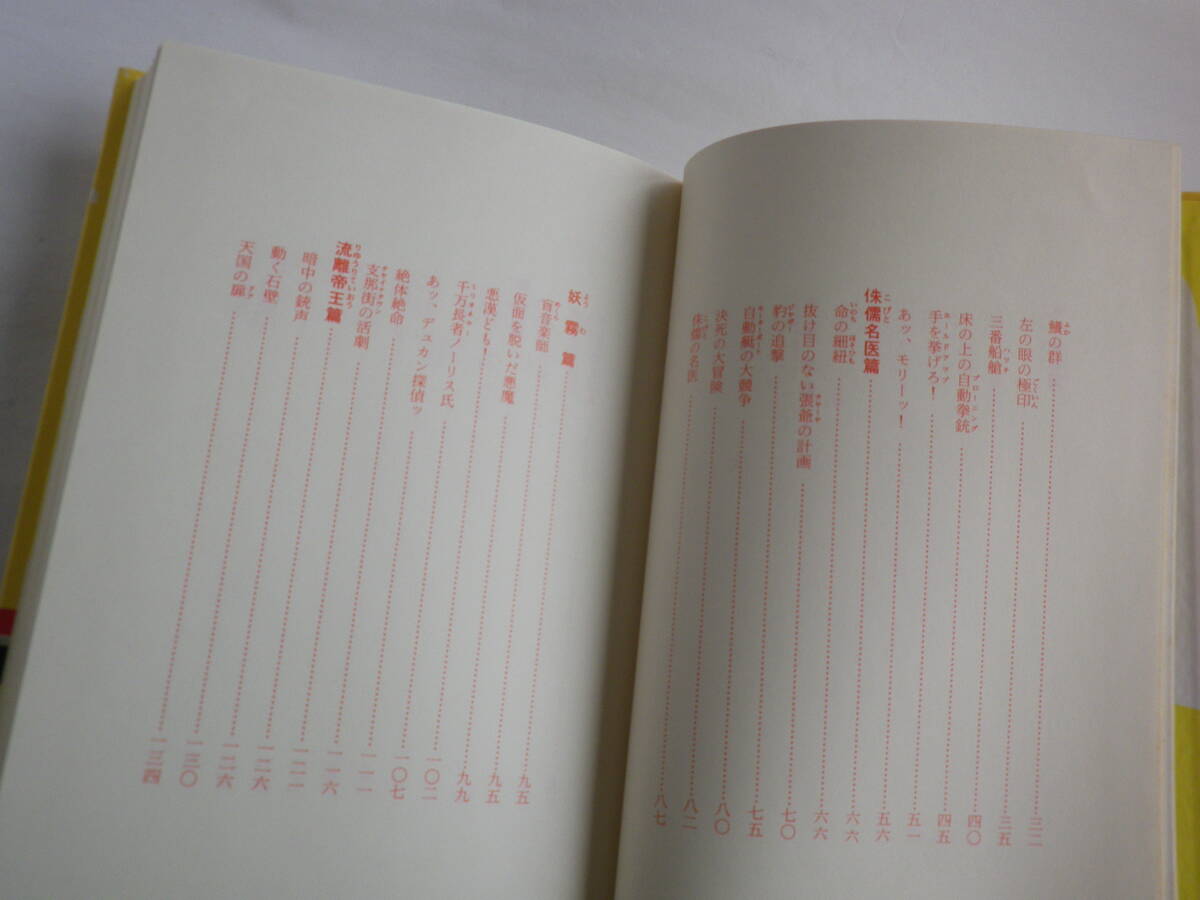 鱶の群……三二
左の眼の極印……三五
三番船艙……四〇
床の上の自動拳銃……四五
手を挙げろ！……五一
あッ、モリーッ！……五六
侏儒名医篇……六六
命の細紐……六六
抜け目のない張爺の計画……七〇
豹の追撃……七五
自動艇の大競争……八〇
決死の大冒険……八二
侏儒の名医……八七
妖霧篇……九五
盲音楽師……九五
仮面を脱いだ悪魔……九九
悪漢ども！……一〇二
千万長者ノーリス氏……一〇七
あッ、デュカン探偵ッ……一一一
絶体絶命……一一六
支那街の活劇……一二一
流離帝王篇……一二六
暗中の銃声……一二六
動く石壁……一三〇
天国の扉……一三四